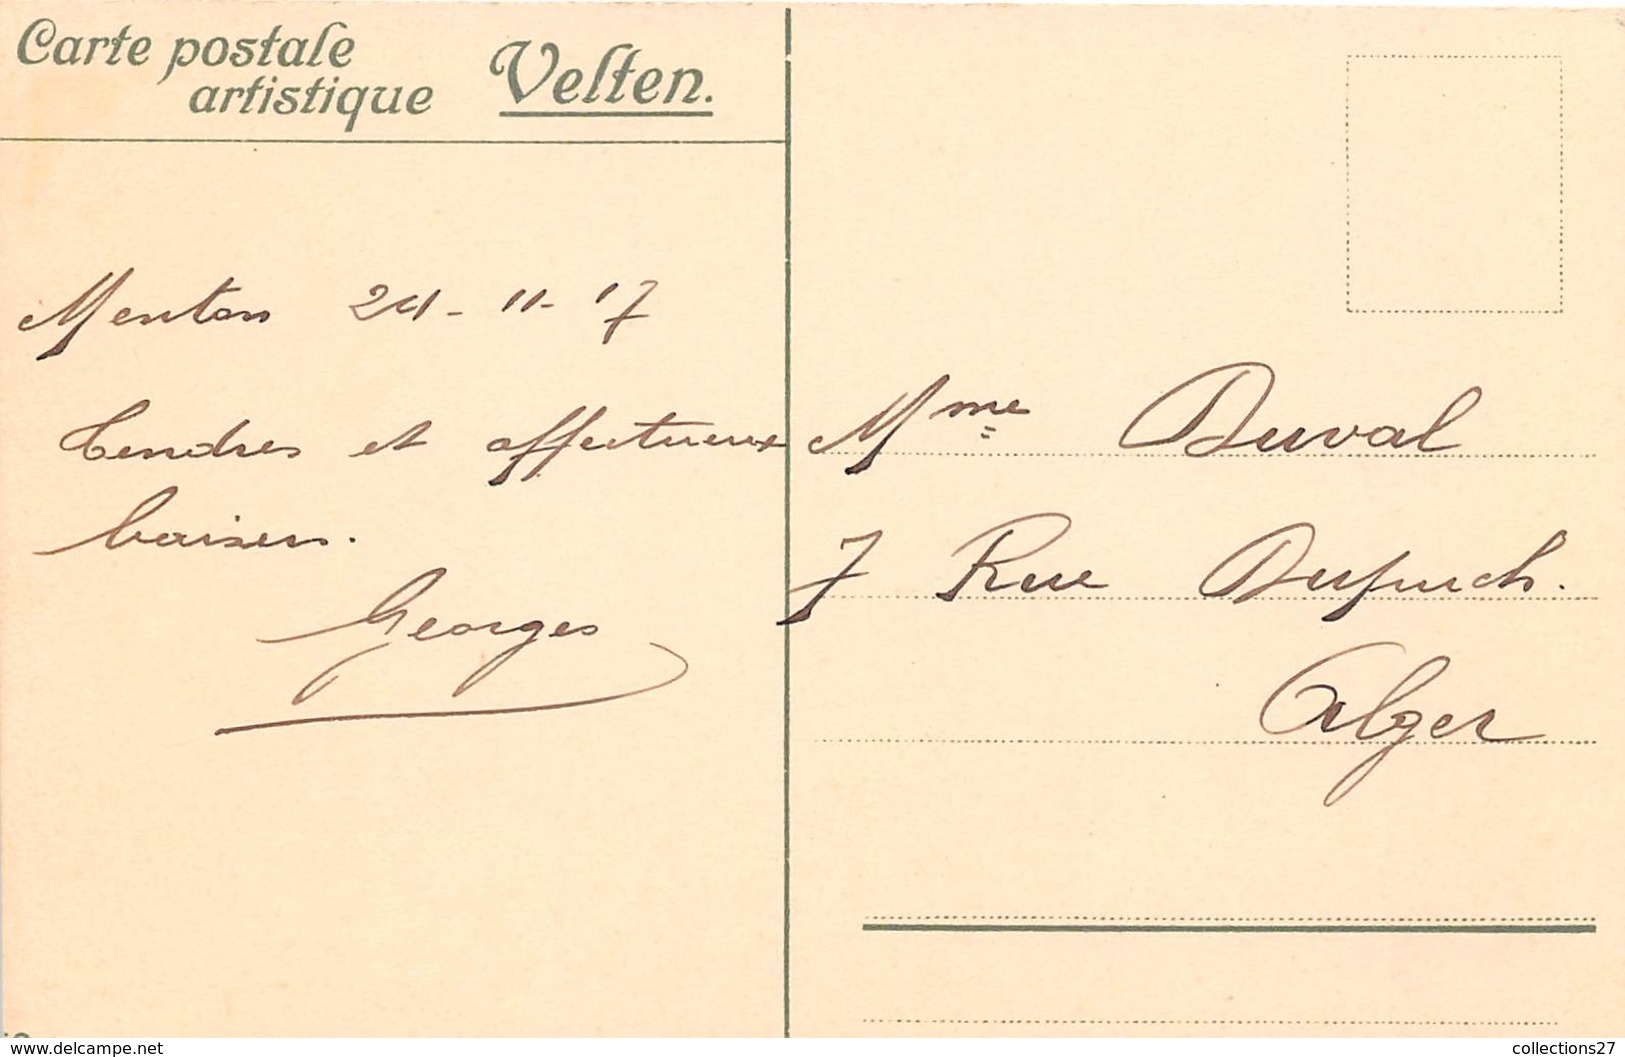 Carte postale
artistique
Velten.
Menton 24-11-17
Tendres et affectueux
baisers.
Georges
Mme Duval
7 Rue Dupuch.
Alger
https://www.delcampe.net
collections27